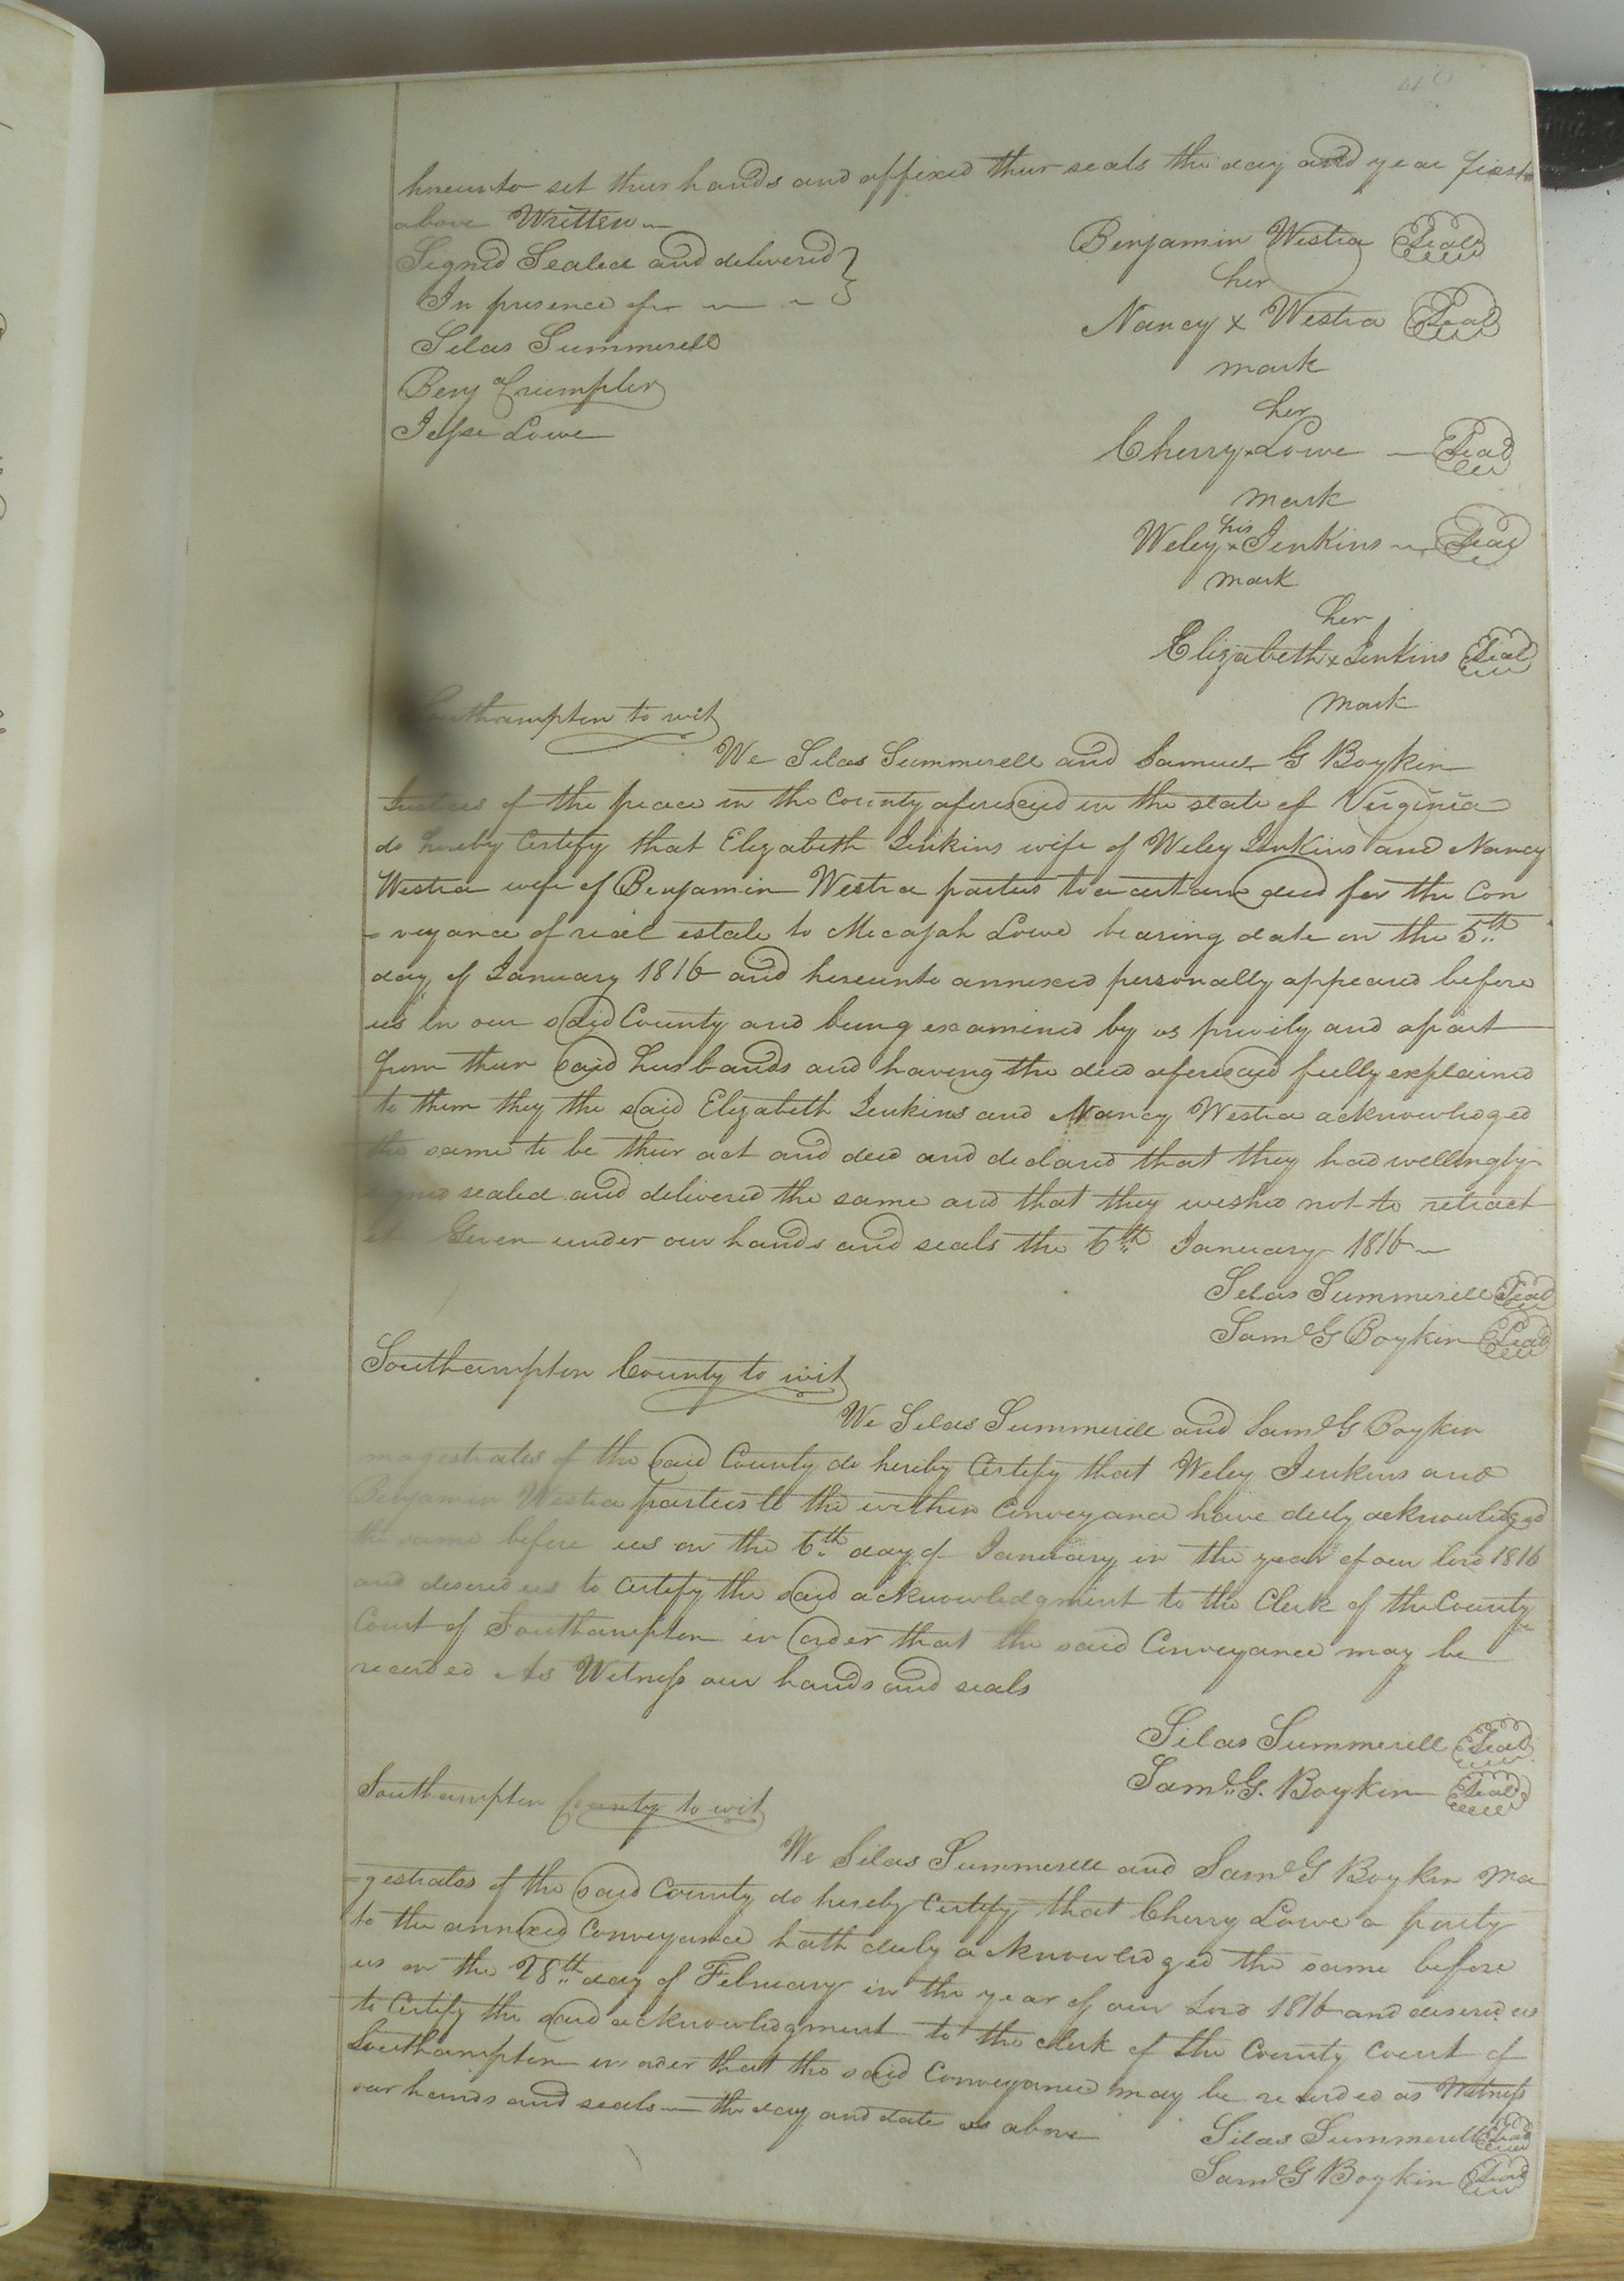 hereunto set their hands and affixed their seals the day and year first
above Written
Signed Sealed and delivered
In presence of
Silas Summerell
Benj a Crumpler
Jesse Lowe
Benjamin Westra Seal
her
Nancy x Westra Seal
mark
her
Cherry x Lowe Seal
mark
his
Weley x Jenkins Seal
mark
her
Elizabeth x Jenkins Seal
mark
Southampton to wit
We Silas Summerell and Samuel G Boykin
Justices of the peace in the County aforesaid in the state of Virginia
do hereby Certify that Elizabeth Jenkins wife of Weley Jenkins and Nancy
Westra wife of Benjamin Westra parties to a certain deed for the Con
-veyance of real estate to Micajah Lowe bearing date on the 5th
day of January 1816 and hereunto annexed personally appeared before
us in our said County and being examined by us privily and apart
from their said husbands and having the deed aforesaid fully explained
to them they the said Elizabeth Jenkins and Nancy Westra acknowledged
the same to be their act and deed and declared that they had willingly
signed sealed and delivered the same and that they wished not to retract
it Given under our hands and seals the 6th January 1816
Silas Summerell Seal
Saml G Boykin Seal
Southampton County to wit
We Silas Summerell and Saml G Boykin
magestrates of the said County do hereby Certify that Weley Jenkins and
Benjamin Westra parties to the within Conveyance have duly acknowledged
the same before us on the 6th day of January in the year of our lord 1816
and desired us to Certify the said acknowledgment to the Clerk of the County
Court of Southampton in order that the said Conveyance may be
recorded As Witness our hands and seals
Silas Summerell Seal
Saml G. Boykin Seal
Southampton County to wit
We Silas Summerell and Saml G Boykin Ma
-gestrates of the said County do hereby Certify that Cherry Lowe a party
to the annexed Conveyance hath duly acknowledged the same before
us on the 28th day of February in the year of our Lord 1816 and desired us
to Certify the said acknowledgment to the clerk of the County Court of
Southampton in order that the said Conveyance may be recorded as Witness
our hands and seals the day and date as above
Silas Summerell Seal
Saml G Boykin Seal